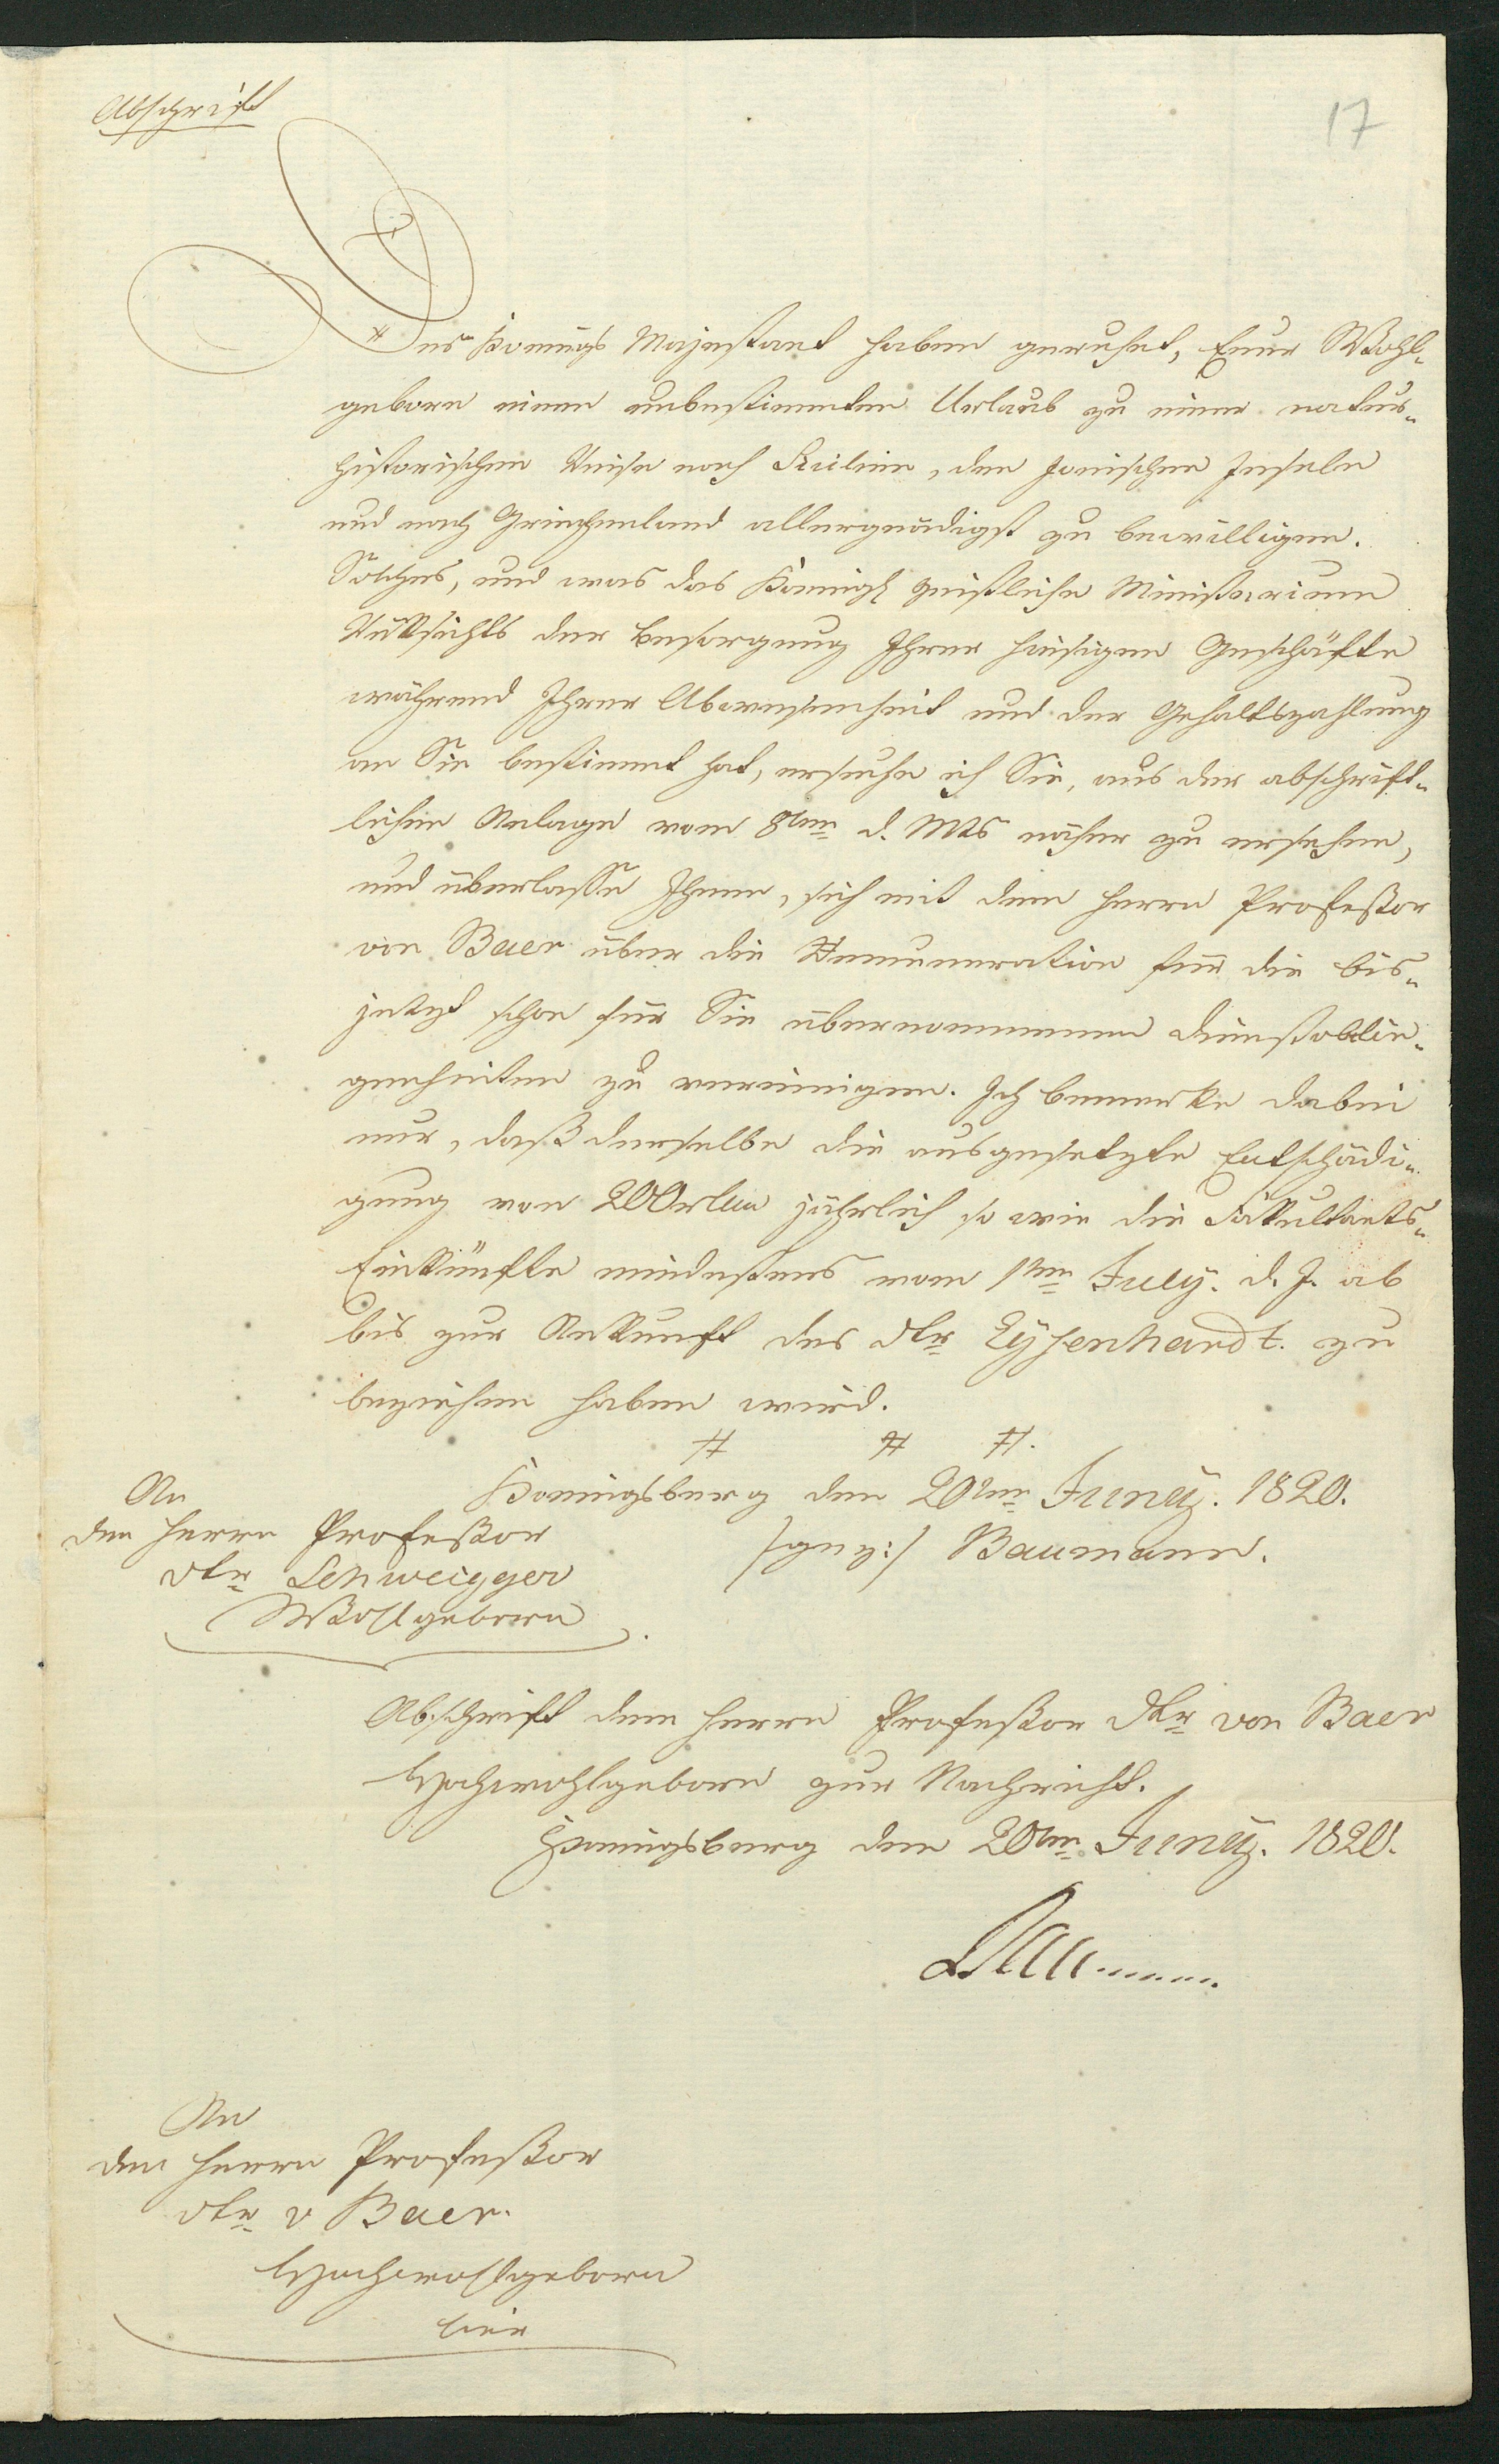 Abschrift
17
Des Koenigs Majestaet haben geruhet, Euer Wohl-
geborn einen unbestimmten Urlaub zu einer natur-
historischen Reise nach Sicilien, den Jonischen Inseln
und nach Griechenland allergnädigst zu bewilligen.
Solches, und was das Königl geistliche Ministerium
Rücksichts der Besorgung Ihrer hiesigen Geschäfte
während Ihrer Abwesenheit und der Gehaltszahlung
an Sie bestimmt hat, ersuche ich Sie, aus der abschrift-
lichen Anlage vom 8ten d. Mts näher zu ersehen,
und überlasse Ihnen, sich mit dem Herrn Profeßor
von Baer über die Remuneration für die bis-
jetzt schon für Sie übernommenen Dienstoblie-
genheiten zu vereinigen. Ich bemerke dabei
nur, daß derselbe die ausgesetzte Entschädi-
gung von 200 rtlrn jährlich so wie die Fakultaets-
Einkünfte mindestens vom 1ten July. d. J. ab
bis zur Ankunft des Dr Eysenhardt. zu
beziehen haben wird.
Koenigsberg den 20ten Juny. 1820.
/gez:/ Baumann.
An
den Herrn Profeßor
Dr Schweigger
Wohlgeborn
Abschrift dem Herrn Profeßor Dr von Baer
Hochwohlgeborn zur Nachricht.
Koenigsberg den 20ten Juny. 1820.
Baumann
An
den Herrn Profeßor
Dr v Baer.
Hochwohlgeborn
hier